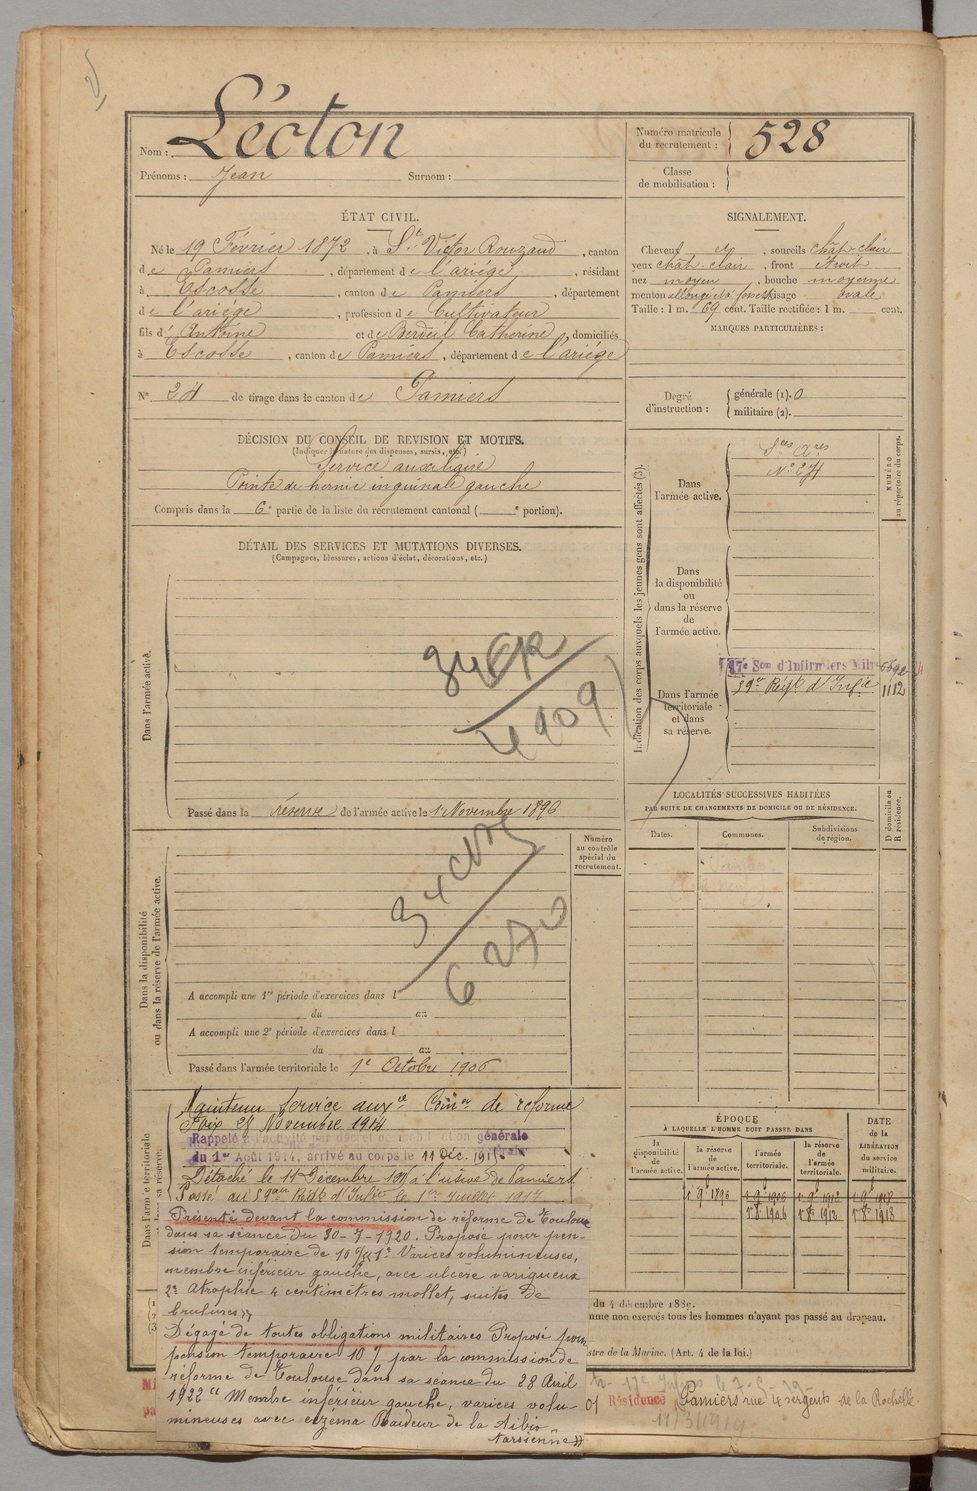 Nom : Léoton
Prénoms : Jean Surnom :
Numéro matricule du recrutement : 528
Classe de mobilisation :
ÉTAT CIVIL.
Né le 19 Février 1872, à St Victor Rouzaud, canton
de Pamiers, département de l'ariége, résidant
à Escosse, canton de Pamiers, département
de l'ariége, profession de Cultivateur
fils d'Antoine et de Berdeil Catherine, domiciliés
à Escosse, canton de Pamiers, département de l'ariége
SIGNALEMENT.
Cheveux et, sourcils chât-clair
yeux chât-clair, front étroit
nez moyen, bouche moyenne
menton visage ovale
Taille : 1 m. 69 cent. Taille rectifiée : 1 m. cent.
MARQUES PARTICULIÈRES :
N° 24 de tirage dans le canton de Pamiers
Degré d'instruction : générale (1). 0
militaire (2).
DÉCISION DU CONSEIL DE REVISION ET MOTIFS.
(Indiquer la nature des dispenses, sursis, etc.)
Service auxiliaire
Pointe de hernie inguinale gauche
Compris dans la 6e partie de la liste du recrutement cantonal ( e portion).
DÉTAIL DES SERVICES ET MUTATIONS DIVERSES.
(Campagnes, blessures, actions d'éclat, décorations, etc.)
Dans l'armée active.
Passé dans la réserve de l'armée active le 1 Novembre 1896
Indication des corps auxquels les jeunes gens sont affectés (3).
NUMÉRO au répertoire du corps.
Dans l'armée active.
Sces Ares
N° 271
Dans la disponibilité ou dans la réserve de l'armée active.
Dans l'armée territoriale et dans sa réserve.
17e Son d'Infirmiers Milres
59e Regt d'Infie 1112
LOCALITÉS SUCCESSIVES HABITÉES
PAR SUITE DE CHANGEMENTS DE DOMICILE OU DE RÉSIDENCE.
Dates. Communes. Subdivisions de région.
D domicile ou R résidence.
Dans la disponibilité ou dans la réserve de l'armée active.
Numéro au contrôle spécial du recrutement.
6270
A accompli une 1re période d'exercices dans l
du au
A accompli une 2e période d'exercices dans l
du au
Passé dans l'armée territoriale le 1e Octobre 1906
Dans l'armée territoriale
sa réserve.
Maintenu service auxre Comon de réforme
Foix 28 Novembre 1914
Rappelé à l'activité par décret de mobilisation générale
du 1er Août 1914, arrivé au corps le 11 Déc. 1915
Détaché le 11 Décembre à l'usine de Pamiers
Passé au 59eme Regt d'Infie le 1er Juillet 1917
Présenté devant la commission de réforme de Toulouse
dans sa séance du 30-7-1920. Proposé pour pen-
sion temporaire de 10% 1° Varices volumineuses,
membre inférieur gauche, avec ulcère variqueux
2° Atrophie 4 centimètres mollet, suites de
brulures
Dégagé de toutes obligations militaires Proposé pour
pension temporaire 10% par la commission de
réforme de Toulouse dans sa séance du 28 Avril
1922 "Membre inférieur gauche, varices volu-
mineuses avec eczéma Raideur de la tibio
tarsienne"
ÉPOQUE
À LAQUELLE L'HOMME DOIT PASSER DANS
la disponibilité de l'armée active. la réserve de l'armée active. l'armée territoriale. la réserve de l'armée territoriale.
DATE de la LIBÉRATION du service militaire.
1 9 1896 1 9 1906 1 9 1912 1 9 1918
1 8 1906 1 8 1912 1 8 1918
du 4 décembre 1889.
mme non exercés tous les hommes n'ayant pas passé au drapeau.
stre de la Marine. (Art. 4 de la loi.)
Résidence Pamiers rue 4 sergents de la Rochelle